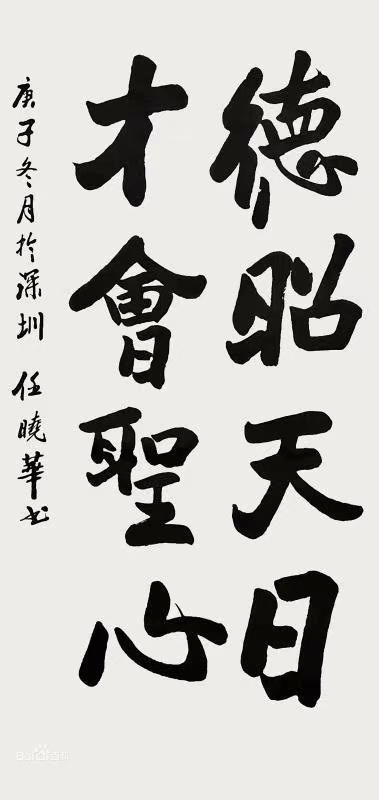 德昭天日
才會聖心
庚子冬月於深圳 任曉華书
Baidu百科